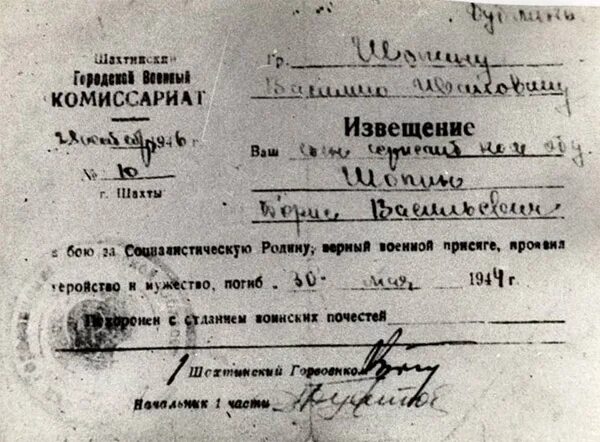 Шахтинский
Городской Военный
КОМИССАРИАТ
28 октября 1946 г.
№ 10
г. Шахты
Гр. Шопину
Василию Ивановичу
Извещение
Ваш сын сержант ком.
Шопин
Борис Васильевич
в бою за Социалистическую Родину, верный военной присяге, проявил
геройство и мужество, погиб 30 мая 1944 г.
Похоронен с отданием воинских почестей
Шахтинский Горвоенком
Начальник 1 части